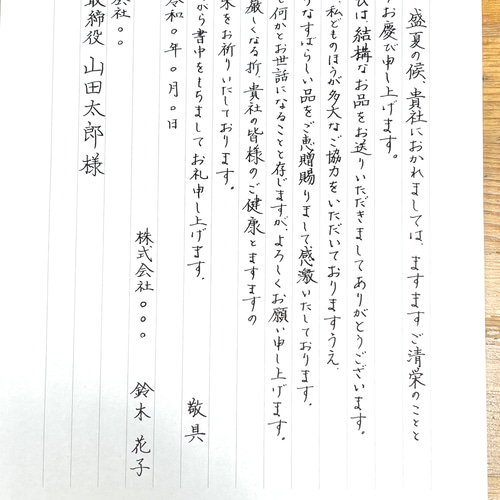 盛夏の候、貴社におかれましては、ますますご清栄のことと
お慶び申し上げます。
は、結構なお品をお送りいただきましてありがとうございます。
、私どものほうが多大なご協力をいただいておりますうえ、
うなすばらしい品をご恵贈賜りまして感激いたしております。
も何かとお世話になることと存じますが、よろしくお願い申し上げます。
厳しくなる折、貴社の皆様のご健康とますますの
をお祈りいたしております。
がら書中をもちましてお礼申し上げます。
敬具
令和〇年〇月〇日
株式会社〇〇〇 鈴木花子
会社〇〇
取締役 山田太郎様